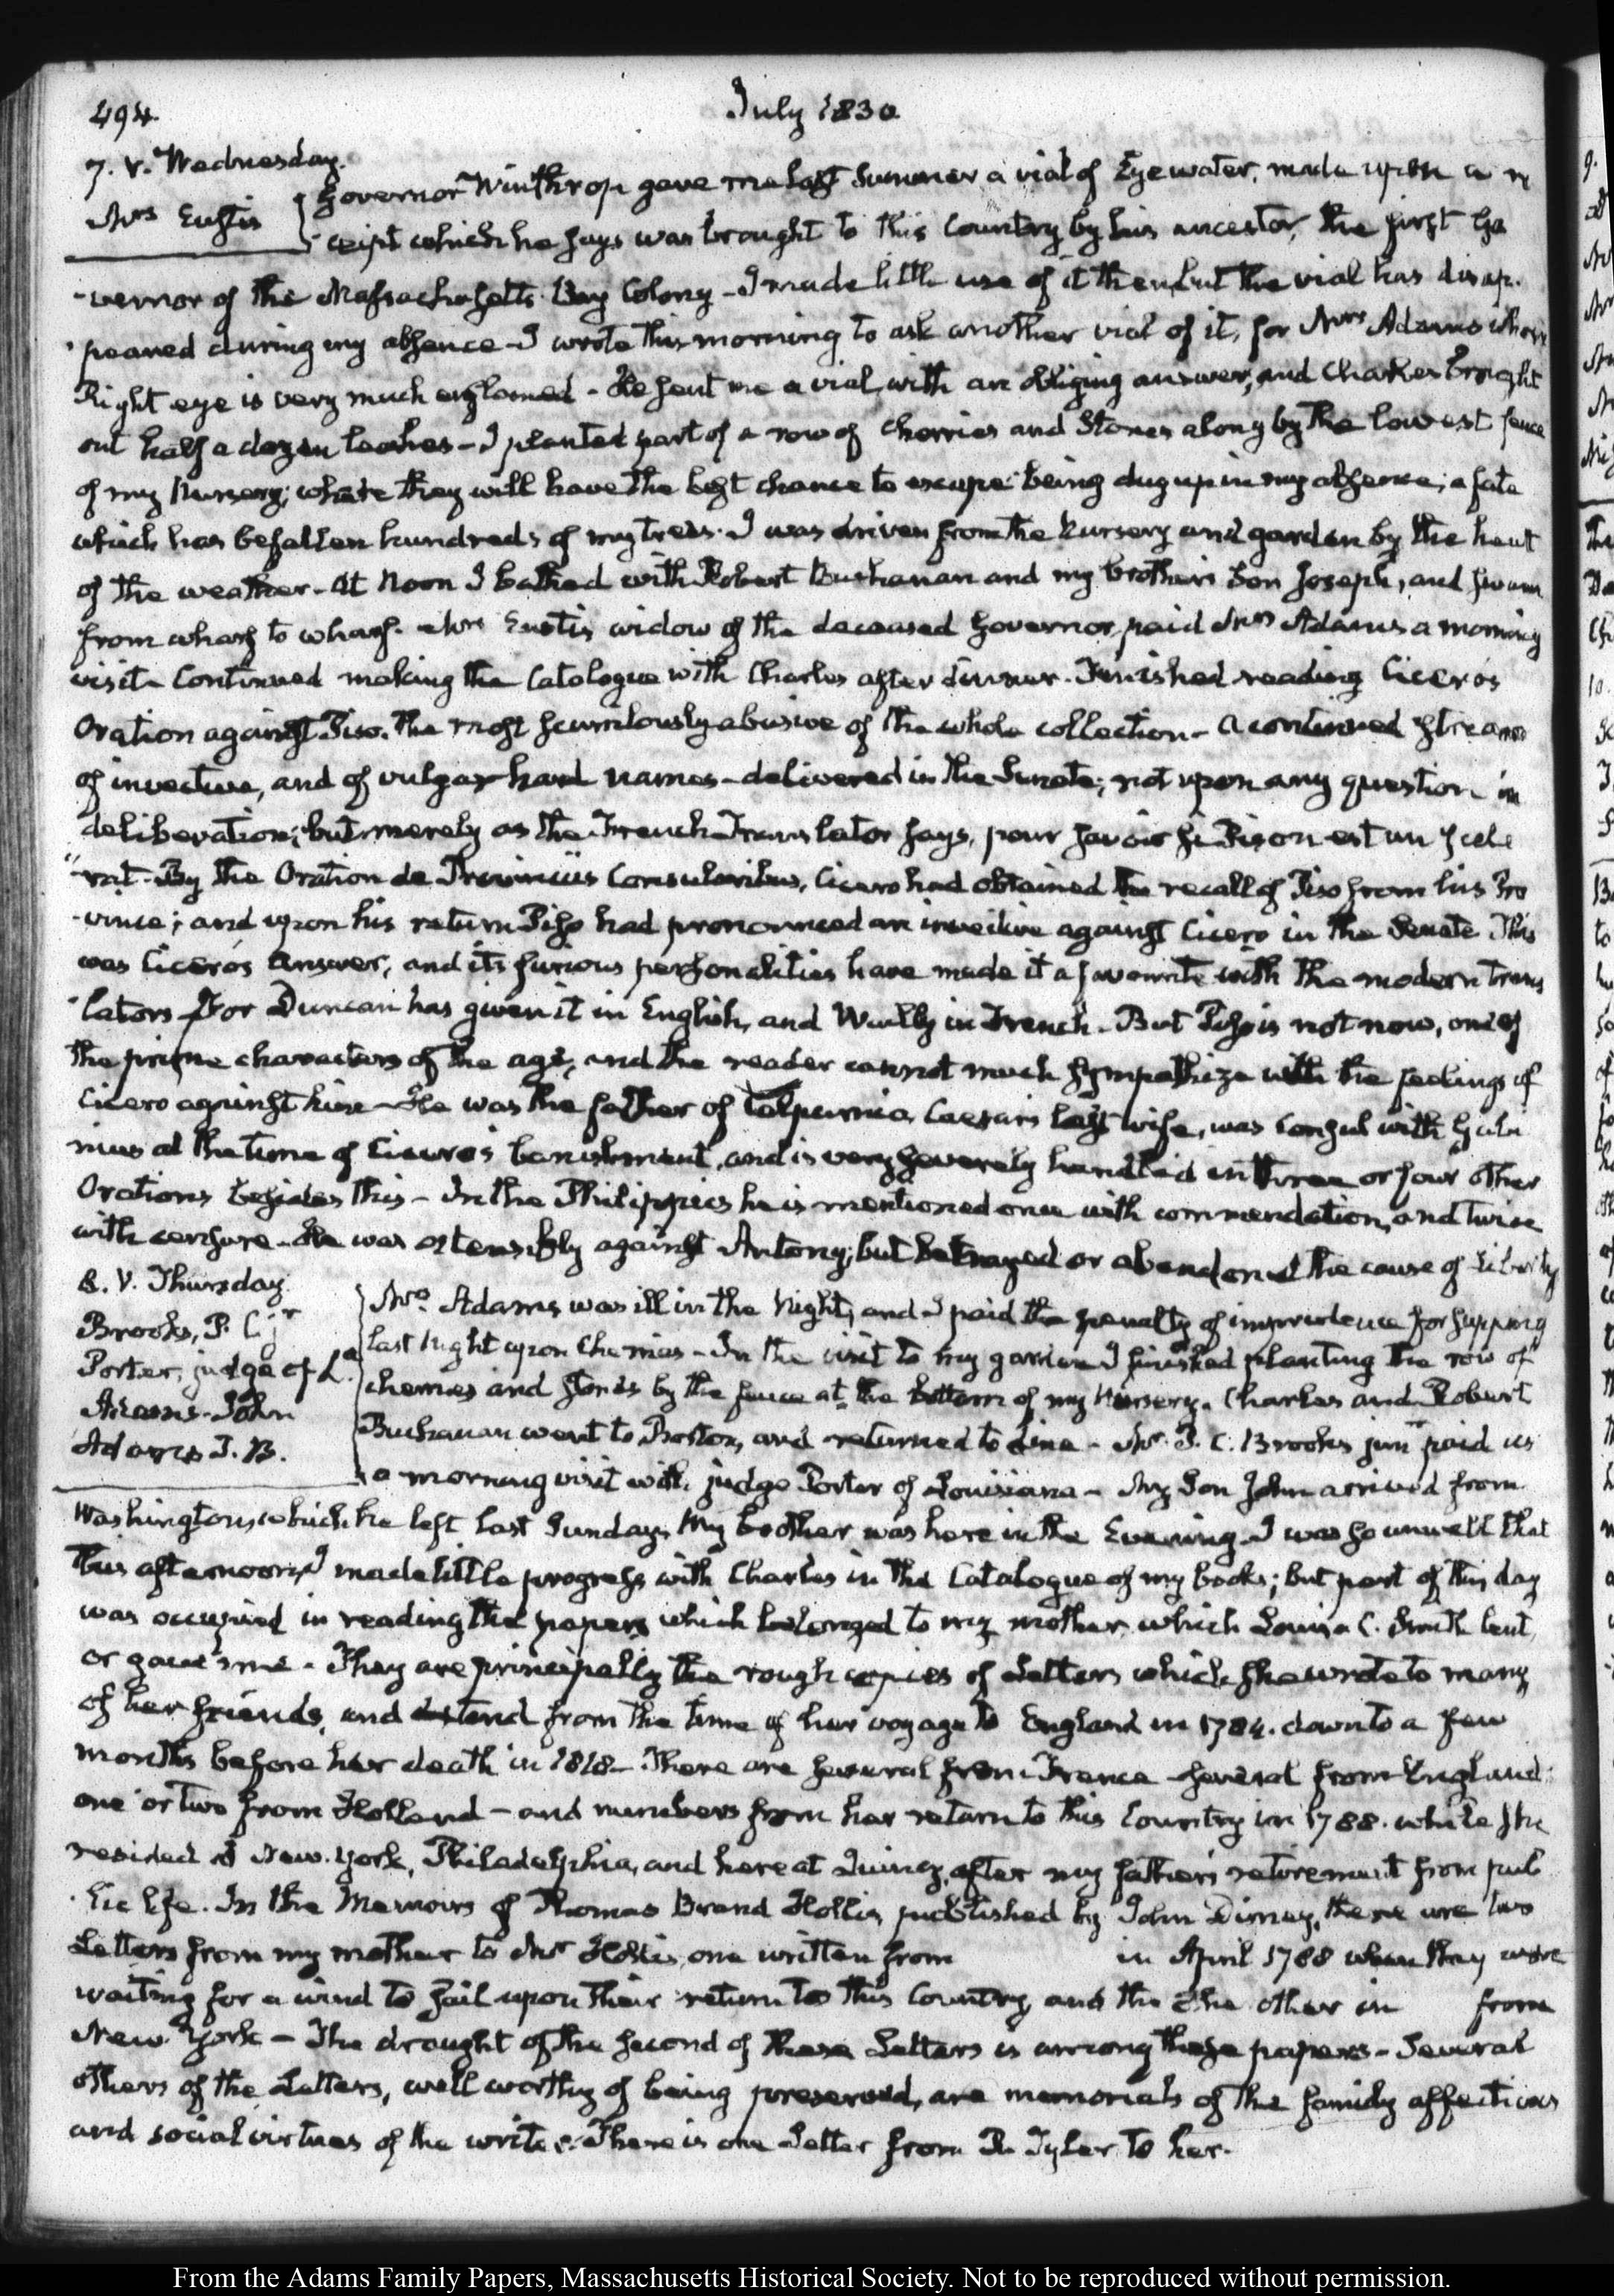 494
July 1830
7. V. Wednesday.
Mrs Eustis
Governor Winthrop gave me last Summer a vial of Eye water, made upon a re
ceipt which he says was brought to this Country by his ancestor, the first Go
-vernor of the Massachusetts Bay Colony - I made little use of it then, but the vial has disap-
peared during my absence - I wrote this morning to ask another vial of it, for Mrs Adams whose
Right eye is very much inflamed - He sent me a vial, with an obliging answer, and Charles brought
out half a dozen leaches - I planted part of a row of Cherries and Stones along by the lowest fence
of my Nursery; where they will have the best chance to escape being dug up in my absence; a fate
which has befallen hundreds of my trees. I was driven from the Nursery and garden by the heat
of the weather - At Noon I bathed with Robert Buchanan and my brother's Son Joseph, and swam
from wharf to wharf. Mrs Eustis widow of the deceased Governor, paid Mrs Adams a morning
visit - Continued making the Catalogue with Charles after dinner. Finished reading Cicero's
Oration against Piso. The most scurrilously abusive of the whole collection - a continued stream
of invective, and of vulgar hard names - delivered in the Senate; not upon any question in
deliberation; but merely as the French Translator says, pour savoir si Pison est un scele
"rat - By the Oration de Provinciis Consularibus, Cicero had obtained the recall of Piso from his Pro
-vince; and upon his return Piso had pronounced an invective against Cicero in the Senate This
was Cicero's Answer, and its furious personalities have made it a favourite with the modern trans
-lators - For Duncan has given it in English, and Wailly in French - But Piso is not now, one of
the prime characters of the age, and the reader cannot much sympathize with the feelings of
Cicero against him - He was the father of Calpurnia, Caesar's last wife, was Consul with Gabi
nius at the time of Cicero's banishment, and is very severely handled in three or four other
Orations besides this - In the Philippics he is mentioned once with commendation, and twice
with censure - He was ostensibly against Antony; but betrayed or abandoned the cause of Liberty
8. V. Thursday
Brooks, P. C. jr
Porter, judge of La
Adams - John
Adams T. B.
Mrs Adams was ill in the Night, and I paid the penalty of imprudence for supping
last Night upon Cherries - In the visit to my garden I finished planting the row of
cherries and stones by the fence at the bottom of my Nursery. Charles and Robert
Buchanan went to Boston, and returned to dine - Mr P. C. Brooks junr paid us
a morning visit with judge Porter of Louisiana - My Son John arrived from
Washington, which he left last Sunday, My brother was here in the Evening - I was so unwell that
this afternoon I made little progress with Charles in the Catalogue of my books; but part of this day
was occupied in reading the papers which belonged to my mother, which Louisa C. Smith lent
or gave me - They are principally the rough copies of Letters which she wrote to many
of her friends, and extend from the time of her voyage to England in 1784. down to a few
months before her death in 1818 - There are several from France - several from England:
one or two from Holland - and numbers from her return to this Country in 1788. while she
resided at New-York, Philadelphia, and here at Quincy, after my father's retirement from pub
-lic life. In the Memoirs of Thomas Brand Hollis, published by John Disney, there are two
Letters from my mother to Mr Hollis, one written from in April 1788 when they were
waiting for a wind to sail upon their return to this Country, and the the other in from
New York - The draught of the second of these Letters is among these papers - Several
others of the Letters, well worthy of being preserved, are memorials of the family affections
and social virtues of the writer. There is one Letter from R. Tyler to her.
From the Adams Family Papers, Massachusetts Historical Society. Not to be reproduced without permission.